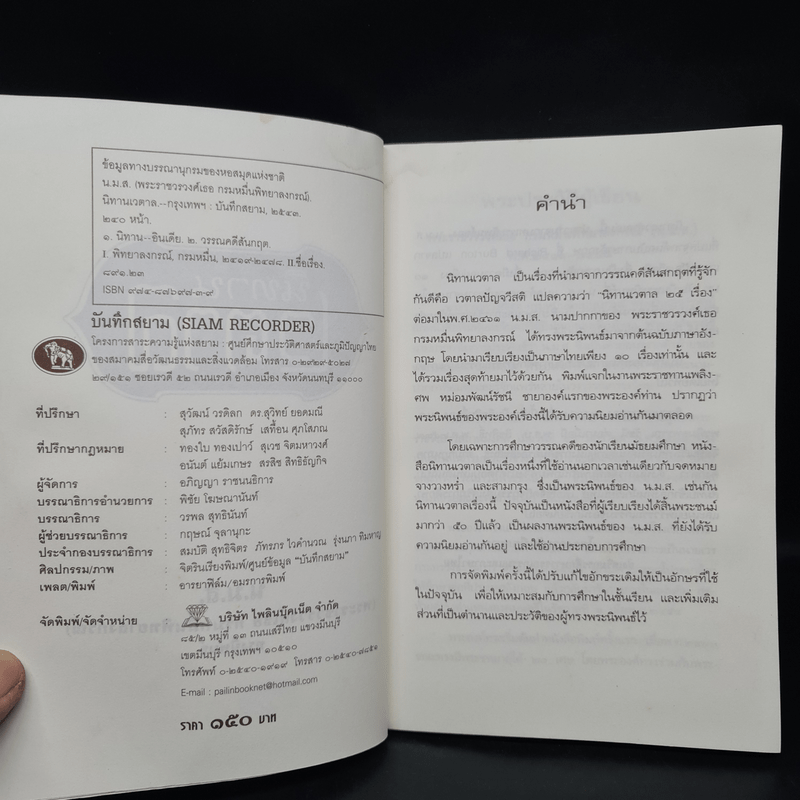 ข้อมูลทางบรรณานุกรมของหอสมุดแห่งชาติ
น.ม.ส. (พระราชวรวงศ์เธอ กรมหมื่นพิทยาลงกรณ์).
นิทานเวตาล.--กรุงเทพฯ : บันทึกสยาม, ๒๕๔๓.
๒๔๐ หน้า.
๑. นิทาน--อินเดีย. ๒. วรรณคดีสันกฤต.
I. พิทยาลงกรณ์, กรมหมื่น, ๒๔๑๙-๒๔๗๘. II.ชื่อเรื่อง.
๘๙๑.๒๓
ISBN ๙๗๔-๘๗๖๙๗-๓-๙
บันทึกสยาม (SIAM RECORDER)
โครงการสาระความรู้แห่งสยาม : ศูนย์ศึกษาประวัติศาสตร์และภูมิปัญญาไทย
ของสมาคมสื่อวัฒนธรรมและสิ่งแวดล้อม โทรสาร ๐-๒๙๒๙-๕๐๒๘
๒๙/๑๕๑ ซอยเรวดี ๕๒ ถนนเรวดี อำเภอเมือง จังหวัดนนทบุรี ๑๑๐๐๐
ที่ปรึกษา : สุวัฒน์ วรดิลก ดร.สุวิทย์ ยอดมณี
สุภัทร สวัสดิรักษ์ เสทื้อน ศุภโสภณ
ที่ปรึกษากฎหมาย : ทองใบ ทองเปาว์ สุเวช จิตมหาวงศ์
อนันต์ แย้มเกษร สรสิช สิทธิธัญกิจ
ผู้จัดการ : อภิญญา ราชนนธิการ
บรรณาธิการอำนวยการ : พิชัย โฆษณานันท์
บรรณาธิการ : วรพล สุทธินันท์
ผู้ช่วยบรรณาธิการ : กฤษณ์ จุลานุกะ
ประจำกองบรรณาธิการ : สมบัติ สุทธิจิตร ภัทรภร ไวคำนวณ รุ่งนภา ทิมหาญ
ศิลปกรรม/ภาพ : จิตรินเรียงพิมพ์/ศูนย์ข้อมูล "บันทึกสยาม"
เพลต/พิมพ์ : อารยาฟิล์ม/อมรการพิมพ์
จัดพิมพ์/จัดจำหน่าย : บริษัท ไพลินบุ๊คเน็ต จำกัด
๘๕/๒ หมู่ที่ ๑๓ ถนนเสรีไทย แขวงมีนบุรี
เขตมีนบุรี กรุงเทพฯ ๑๐๕๑๐
โทรศัพท์ ๐-๒๕๔๐-๑๙๑๙ โทรสาร ๐-๒๕๔๐-๗๘๕๑
E-mail : pailinbooknet@hotmail.com
ราคา ๑๕๐ บาท
คำนำ
นิทานเวตาล เป็นเรื่องที่นำมาจากวรรณคดีสันสกฤตที่รู้จัก
กันดีคือ เวตาลปัญจวีสติ แปลความว่า "นิทานเวตาล ๒๕ เรื่อง"
ต่อมาในพ.ศ.๒๔๖๑ น.ม.ส. นามปากกาของ พระราชวรวงศ์เธอ
กรมหมื่นพิทยาลงกรณ์ ได้ทรงพระนิพนธ์มาจากต้นฉบับภาษาอัง-
กฤษ โดยนำมาเรียบเรียงเป็นภาษาไทยเพียง ๑๐ เรื่องเท่านั้น และ
ได้รวมเรื่องสุดท้ายมาไว้ด้วยกัน พิมพ์แจกในงานพระราชทานเพลิง-
ศพ หม่อมพัฒน์รัชนี ชายาองค์แรกของพระองค์ท่าน ปรากฏว่า
พระนิพนธ์ของพระองค์เรื่องนี้ได้รับความนิยมอ่านกันมาตลอด
โดยเฉพาะการศึกษาวรรณคดีของนักเรียนมัธยมศึกษา หนัง-
สือนิทานเวตาลเป็นเรื่องหนึ่งที่ใช้อ่านนอกเวลาเช่นเดียวกับจดหมาย
จางวางหร่ำ และสามกรุง ซึ่งเป็นพระนิพนธ์ของ น.ม.ส. เช่นกัน
นิทานเวตาลเรื่องนี้ ปัจจุบันเป็นหนังสือที่ผู้เรียบเรียงได้สิ้นพระชนม์
มากว่า ๕๐ ปีแล้ว เป็นผลงานพระนิพนธ์ของ น.ม.ส. ที่ยังได้รับ
ความนิยมอ่านกันอยู่ และใช้อ่านประกอบการศึกษา
การจัดพิมพ์ครั้งนี้ได้ปรับแก้ไขอักขระเดิมให้เป็นอักษรที่ใช้
ในปัจจุบัน เพื่อให้เหมาะสมกับการศึกษาในชั้นเรียน และเพิ่มเติม
ส่วนที่เป็นตำนานและประวัติของผู้ทรงพระนิพนธ์ไว้